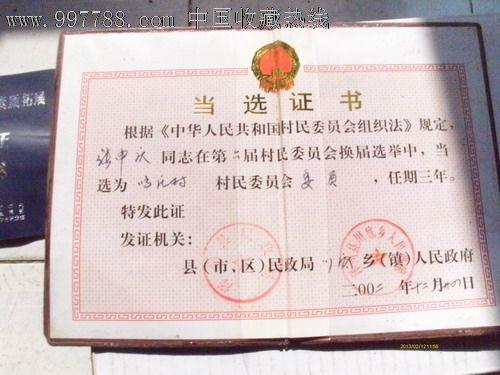 www.997788.com 中国收藏热线
当选证书
根据《中华人民共和国村民委员会组织法》规定，
同志在第二届村民委员会换届选举中，当
选为 村 村民委员会 委员 ，任期三年。
特发此证
发证机关：
县（市、区）民政局 乡（镇）人民政府
二00二年十二月 日
2013/02/12 11:56